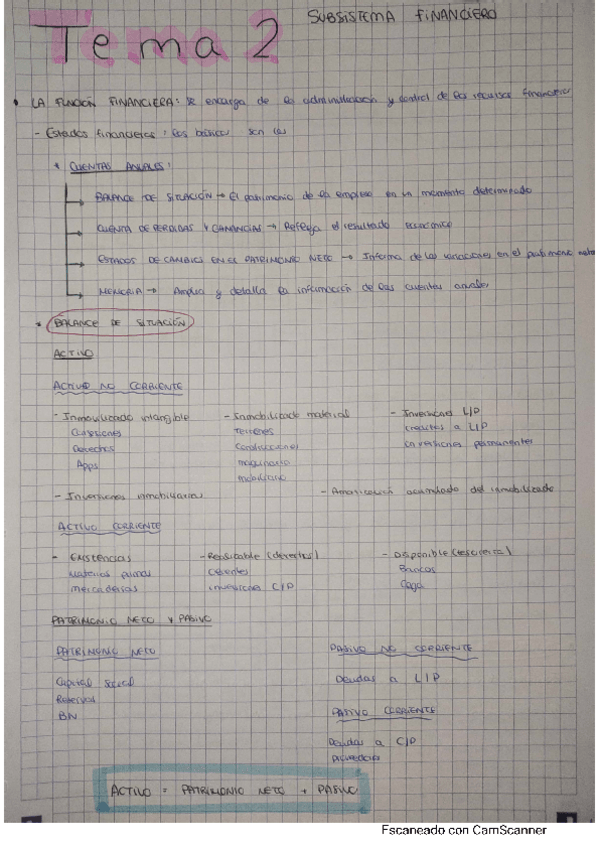 Tema 2
SUBSISTEMA FINANCIERO
• LA FUNCIÓN FINANCIERA: se encarga de la administración y control de los recursos financieros
- Estados financieros: los básicos son las
* CUENTAS ANUALES:
BALANCE DE SITUACIÓN → El patrimonio de la empresa en un momento determinado
CUENTA DE PERDIDAS Y GANANCIAS → Refleja el resultado económico
ESTADOS DE CAMBIOS EN EL PATRIMONIO NETO → Informa de las variaciones en el patrimonio neto
MEMORIA → Amplia y detalla la información de las cuentas anuales
* BALANCE DE SITUACIÓN
ACTIVO
ACTIVO NO CORRIENTE
- Inmovilizado intangible - Inmobilizado material - Inversiones L/P
Terrenos creditos a L/P
Derechos Construcciones inversiones permanentes
Apps maquinaria
mobiliario
- Inversiones inmobiliarias - Amortización acumulada del inmobilizado
ACTIVO CORRIENTE
- Existencias - Realizable (derechos) - Disponible (tesoreria)
Materias primas Clientes Bancos
mercaderias inversiones C/P Caja
PATRIMONIO NETO Y PASIVO
PATRIMONIO NETO PASIVO NO CORRIENTE
Capital Social Deudas a L/P
Reservas
BN PASIVO CORRIENTE
Deudas a C/P
proveedores
ACTIVO = PATRIMONIO NETO + PASIVO
Escaneado con CamScanner